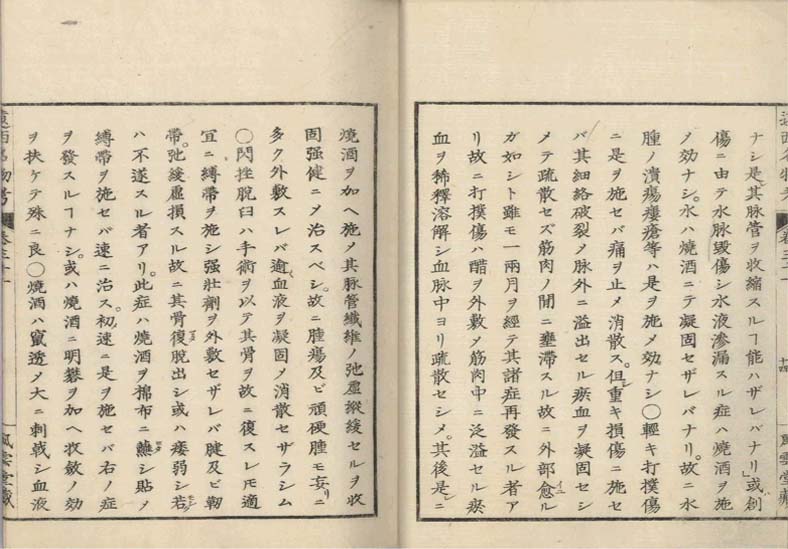 遠西名物考
卷三十
十四
風雲堂藏
ナシ是其脉管ヲ收縮スルヿ能ハザレバナリ」或創
傷ニ由テ水脉毀傷シ水液滲漏スル症ハ燒酒ヲ施
ノ効ナシ。水ハ燒酒ニテ凝固セザレバナリ。故ニ水
腫ノ潰瘍瘻瘡等ハ是ヲ施メ効ナシ〇輕キ打撲傷
ニ是ヲ施セバ痛ヲ止メ消散ス。但シ重キ損傷ニ施セ
バ其細絡破裂メ脉外ニ溢出セル瘀血ヲ凝固セシ
メテ疏散セズ筋肉ノ間ニ壅滯スル故ニ外部愈ル
ガ如シト雖モ一兩月ヲ經テ其諸症再發スル者ア
リ故ニ打撲傷ハ醋ヲ外敷メ筋肉中ニ泛溢セル瘀
血ヲ稀釋溶解シ血脉中ヨリ疏散セシメ。其後是ニ
燒酒ヲ加ヘ施メ其脉管纖維ノ弛虛縱緩セルヲ收
固强健ニメ治スベシ。故ニ腫瘍及ビ頑硬腫モ妄リニ
多ク外敷スレバ逾血液ヲ凝固メ消散セザラシム
〇閃挫脫臼ハ手術ヲ以テ其骨ヲ故ニ復スレㇳモ適
宜ニ縛帶ヲ施シ强壯劑ヲ外敷セザレバ腱及ビ靭
帶。弛緩虛損スル故ニ其骨復脫出シ或ハ痿弱シ若クハ
不遂スル者アリ。此症ハ燒酒ヲ棉布ニ蘸シ貼メ
縛帶ヲ施セバ速ニ治ス。初速ニ是ヲ施セバ右ノ症
ヲ發スルヿナシ。或ハ燒酒ニ明礬ヲ加ヘ收斂ノ効
ヲ扶ケテ殊ニ良〇燒酒ハ竄透メ大ニ刺戟シ血液
遠西名物考
卷三十
風雲堂藏